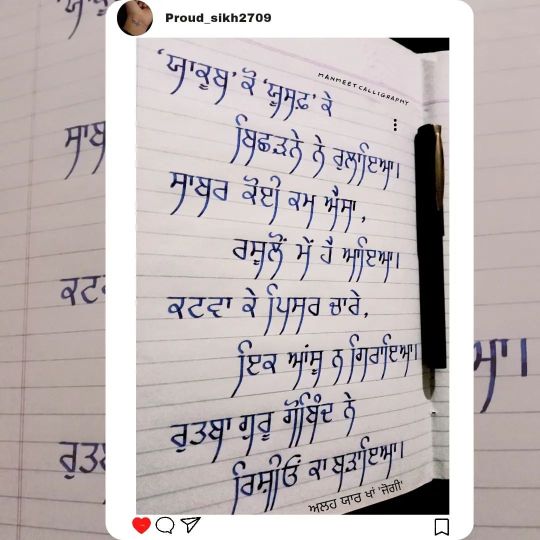 Proud_sikh2709
MANMEETCALLIGRAPHY
'ਯਾਕੂਬ' ਕੋ 'ਯੂਸਫ਼' ਕੇ
ਬਿਛੜਨੇ ਨੇ ਰੁਲਾਇਆ।
ਸਾਬਰ ਕੋਈ ਕਮ ਐਸਾ,
ਰਸੂਲੋਂ ਮੇਂ ਹੈ ਆਇਆ।
ਕਟਵਾ ਕੇ ਪਿਸਰ ਚਾਰੇ,
ਇਕ ਆਂਸੂ ਨ ਗਿਰਾਇਆ।
ਰੁਤਬਾ ਗੁਰੂ ਗੋਬਿੰਦ ਨੇ
ਰਿਸ਼ੀਓਂ ਕਾ ਬੜਾਇਆ।
ਅਲਹ ਯਾਰ ਖਾਂ 'ਜੋਗੀ'